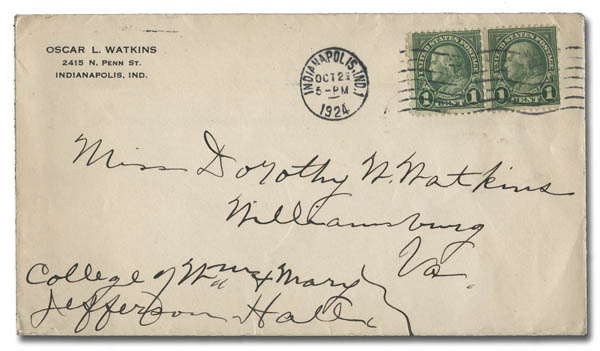 OSCAR L. WATKINS
2415 N. PENN ST.
INDIANAPOLIS, IND.
INDIANAPOLIS, IND. 1
OCT 21
5-PM
1924
UNITED STATES POSTAGE
1 CENT 1
UNITED STATES POSTAGE
1 CENT 1
Miss Dorothy W. Watkins
Williamsburg
Va.
College of Wm & Mary
Jefferson Hall.